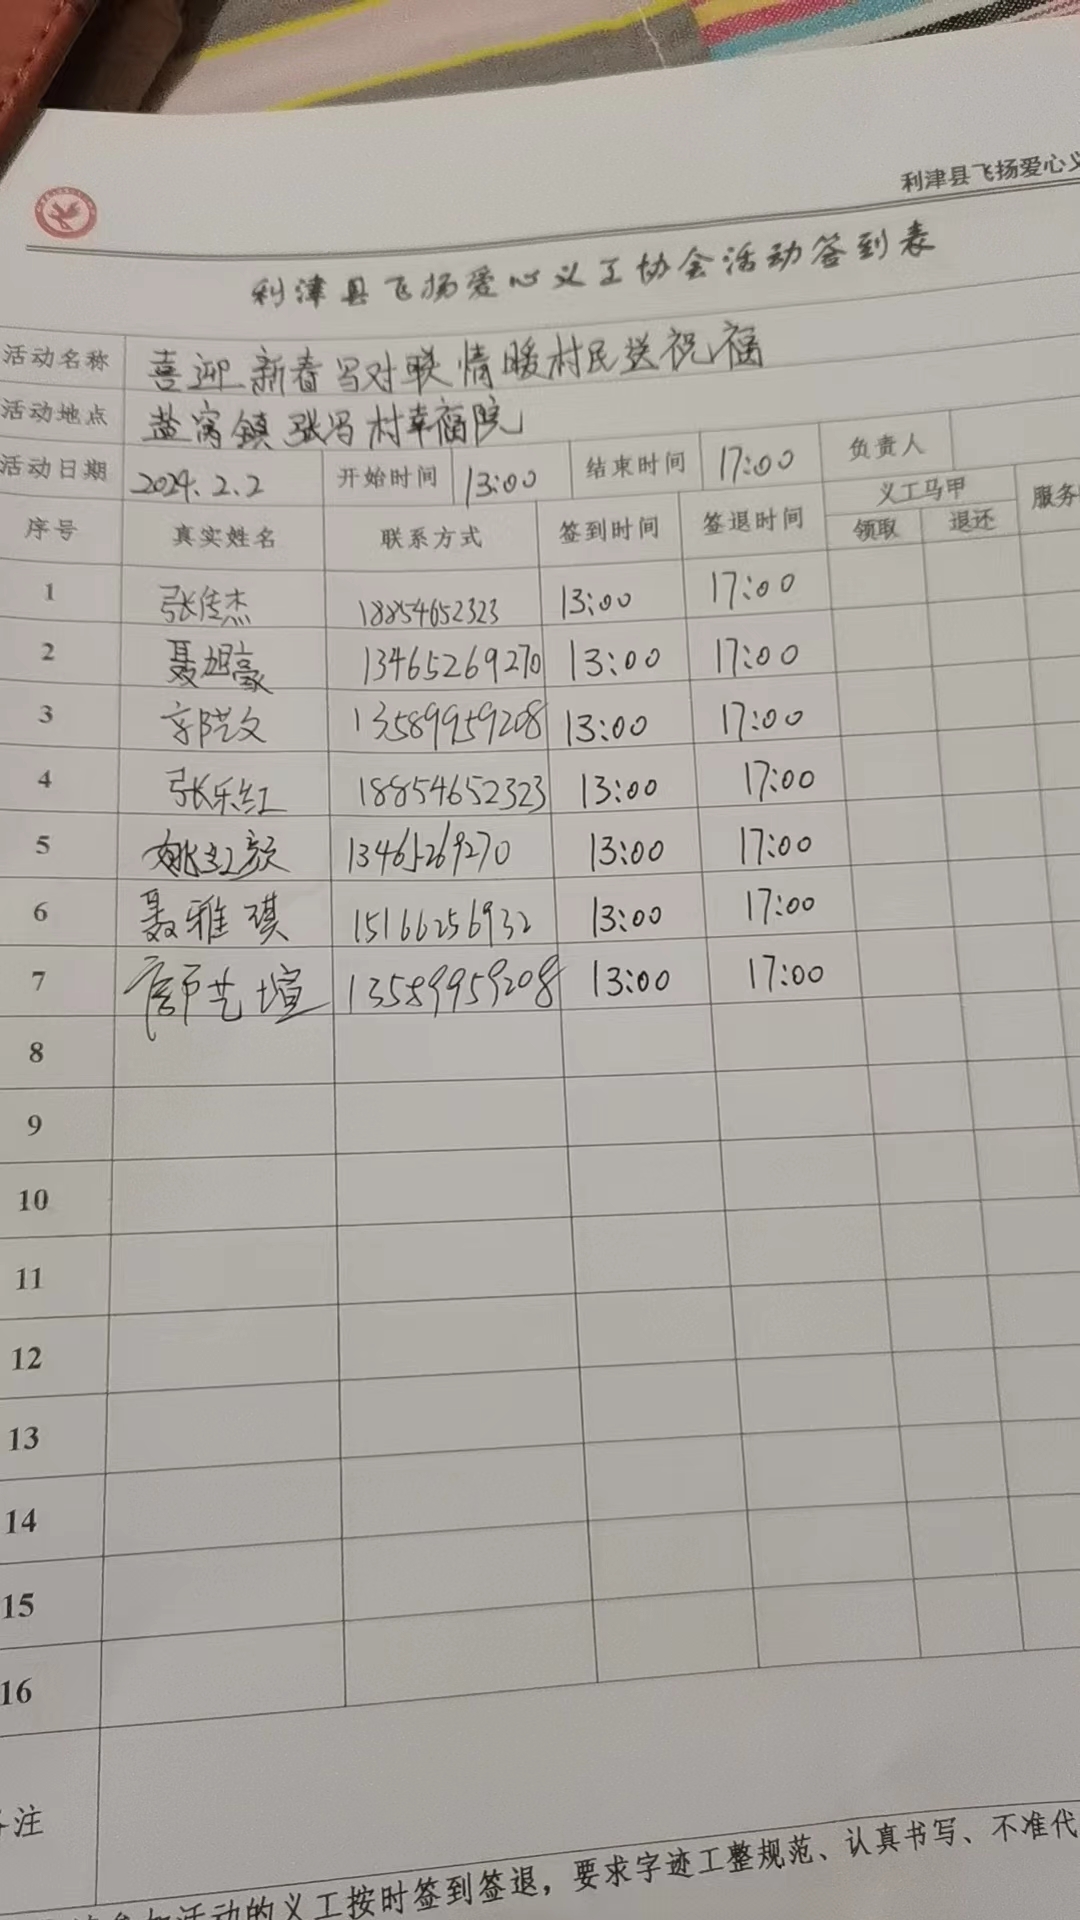 利津县飞扬爱心义
利津县飞扬爱心义工协会活动签到表
活动名称 喜迎新春写对联 情暖村民送祝福
活动地点 盐窝镇张冯村幸福院
活动日期 2024.2.2 开始时间 13:00 结束时间 17:00 负责人
序号 真实姓名 联系方式 签到时间 签退时间 义工马甲 服务
领取 退还
1 张传杰 18854652323 13:00 17:00
2 聂旭豪 13465269270 13:00 17:00
3 13589959208 13:00 17:00
4 张乐红 18854652323 13:00 17:00
5 姚红颜 13465269270 13:00 17:00
6 聂雅琪 15166256932 13:00 17:00
7 艺煊 13589959208 13:00 17:00
8
9
10
11
12
13
14
15
16
注
参加活动的义工按时签到签退，要求字迹工整规范、认真书写、不准代